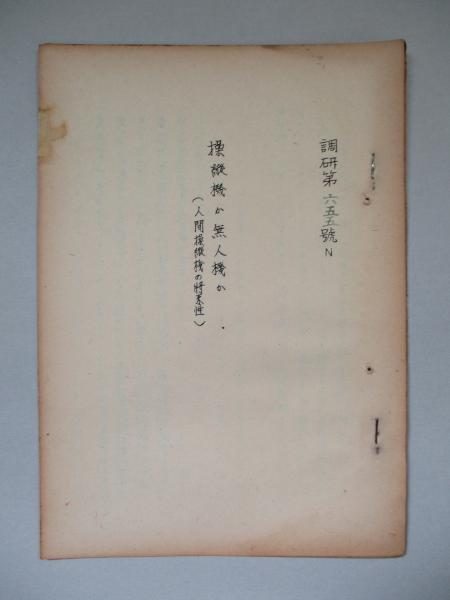 調研第六五五號N
操縱機か無人機か
(人間操縱機の將来性)